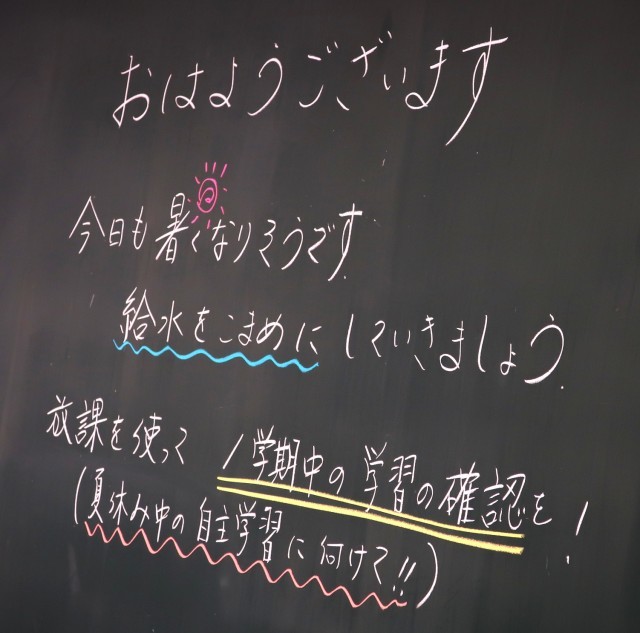 おはようございます
今日も暑くなりそうです.
給水をこまめにしていきましょう.
放課を使って 1学期中の学習の確認を!
(夏休み中の自主学習に向けて!!)